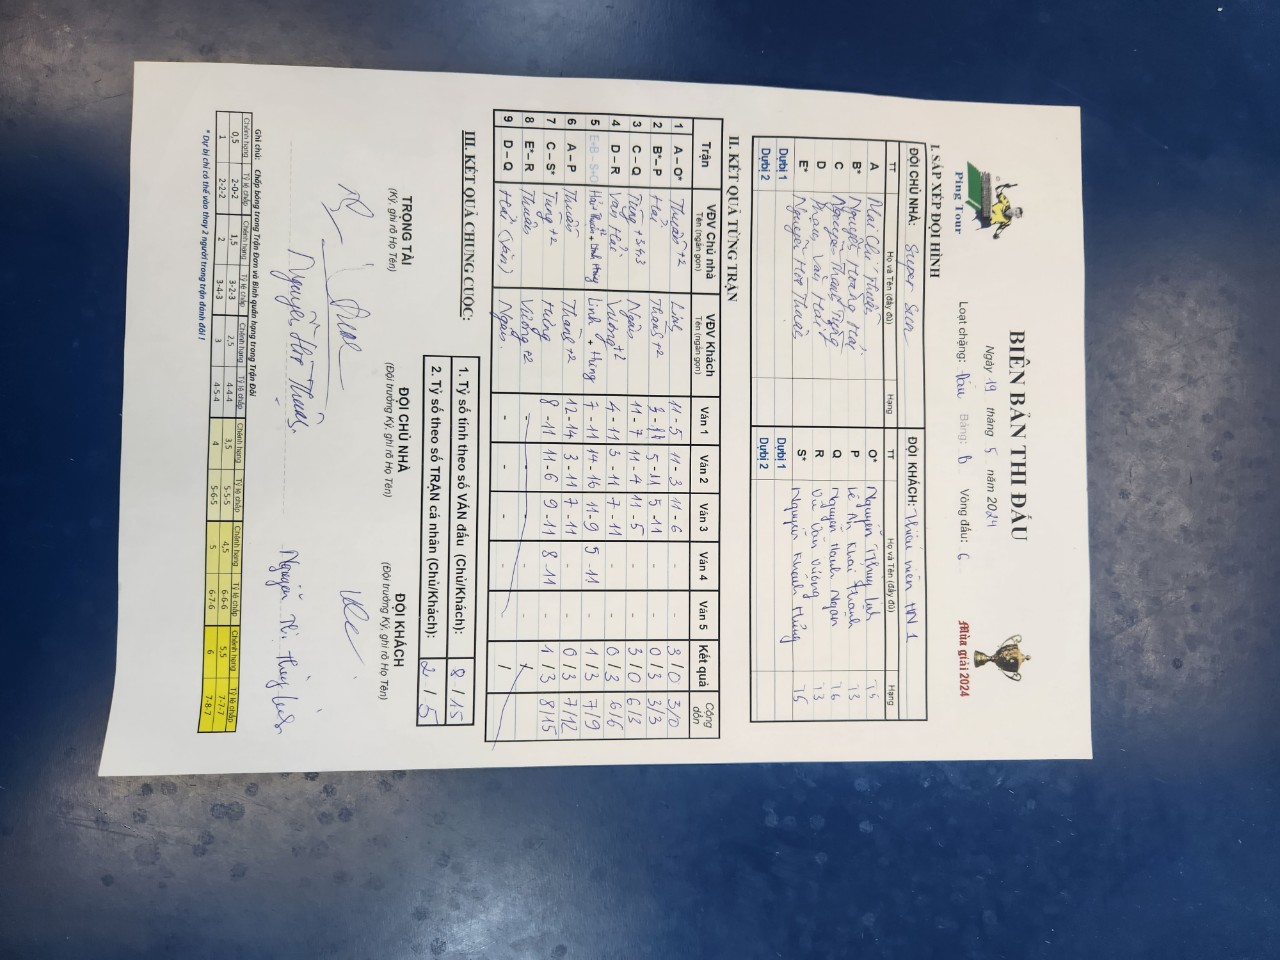 Ping Tour
BIÊN BẢN THI ĐẤU
Ngày 19 tháng 5 năm 2024
Loạt chặng: Đầu Bảng: B Vòng đấu: 6
Mùa giải 2024
I. SẮP XẾP ĐỘI HÌNH
ĐỘI CHỦ NHÀ: Super Sun ĐỘI KHÁCH: HN 1
TT Họ và Tên (đầy đủ) Hạng TT Họ và Tên (đầy đủ) Hạng
A Mai Chí Thuần O* Nguyễn Thùy Linh
B* Nguyễn Hoàng Hải P Lê An Khải Thành
C Nguyễn Thanh Tùng Q Nguyễn Hạnh Ngân
D Phạm Văn Hải R Vũ Văn Vương
E* Nguyễn Hòa Thuận S* Nguyễn Khánh Hùng
Dự bị 1 Dự bị 1
Dự bị 2 Dự bị 2
II. KẾT QUẢ TỪNG TRẬN
Trận VĐV Chủ nhà Tên (ngắn gọn) VĐV Khách Tên (ngắn gọn) Ván 1 Ván 2 Ván 3 Ván 4 Ván 5 Kết quả Cộng dồn
1 A – O* Thuần +2 Linh 11 - 5 11 - 3 11 - 6 - - 3 / 0 3/0
2 B* – P Hải Thành +2 5 - 11 5 - 11 - - 0 / 3 3/3
3 C – Q Tùng +3 4 3 Ngân 11 - 7 11 - 4 11 - 5 - - 3 / 0 6/3
4 D – R Văn Hải Vương +2 4 - 11 3 - 11 7 - 11 - - 0 / 3 6/6
5 Linh + Hùng 7 - 11 14 - 16 11 - 9 5 - 11 - 1 / 3 7/9
6 A – P Thuần Thành +2 12 - 14 3 - 11 7 - 11 - - 0 / 3 7/12
7 C – S* Tùng +2 Hùng 8 - 11 11 - 6 9 - 11 8 - 11 - 1 / 3 8/15
8 E* – R Thuận Vương +2 - - - - - /
9 D – Q Hải (Văn) Ngân - - - - - /
III. KẾT QUẢ CHUNG CUỘC:
1. Tỷ số tính theo số VÁN đấu (Chủ/Khách): 8 / 15
2. Tỷ số theo số TRẬN cá nhân (Chủ/Khách): 2 / 5
TRỌNG TÀI ĐỘI CHỦ NHÀ ĐỘI KHÁCH
(Ký, ghi rõ Họ Tên) (Đội trưởng Ký, ghi rõ Họ Tên) (Đội trưởng Ký, ghi rõ Họ Tên)
Nguyễn Hòa Thuận Nguyễn Thị Thùy Linh
Ghi chú: Chấp bóng trong Trận Đơn và Bình quân hạng trong Trận Đôi
Chênh hạng Tỷ lệ chấp Chênh hạng Tỷ lệ chấp Chênh hạng Tỷ lệ chấp Chênh hạng Tỷ lệ chấp Chênh hạng Tỷ lệ chấp Chênh hạng Tỷ lệ chấp
0,5 2-0-2 1,5 3-2-3 2,5 4-4-4 3,5 5-5-5 4,5 6-6-6 5,5 7-7-7
1 2-2-2 2 3-4-3 3 4-5-4 4 5-6-5 5 6-7-6 6 7-8-7
* Dự bị chỉ có thể vào thay 2 người trong trận đánh đôi !